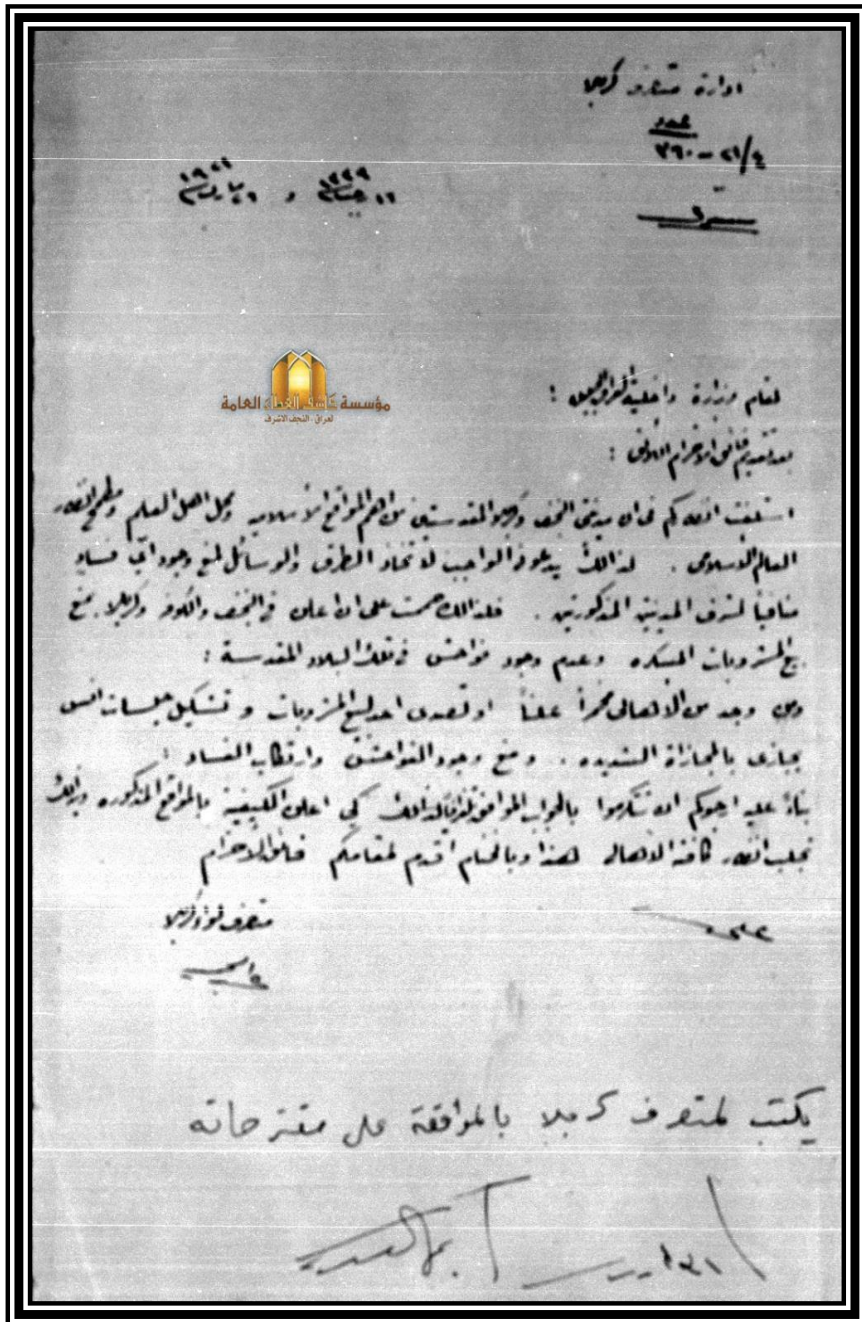 ادارة متصرف كربلا
عدد
٢١/٤ - ٣٩٠
سري
١٦ ١٣٣٩ و ٢٦ مارت ١٩٢١
مؤسسة كاشف الغطاء العامة
العراق - النجف الاشرف
لمقام وزارة داخلية العراق الجليل :
بعد تقديم فائق الاحترام اللائق :
استلفت انظاركم في ان مدينتي النجف وكربلا المقدستين من اهم المواقع الاسلامية ومحل اهل العلم ومطمح انظار
العالم الاسلامي . لذالك يدعوا الواجب لاتخاذ الطرق والوسائل لمنع وجود اي فساد
منافياً لشرف المدينتين المذكورتين . فلذالك صممت على ان اعلن في النجف والكوفه وكربلا بمنع
بيع المشروبات المسكره وعدم وجود فواحش في تلك البلاد المقدسة :
ومن وجد من الاهالي علناً او تصدى احد لبيع المشروبات و تشكيل جلسات انس
يجازى بالمجازاة الشديده . ومنع وجود الفواحش وارتكاب الفساد
بناءً عليه ارجوكم ان تتكرموا بالجواب الموافق كي اعلن الكيفية بالمواقع المذكوره وبذلك
تجلب انظار كافة الاهالي هذا وبالختام اقدم لمقامكم فائق الاحترام
متصرف لواء كربلا
يكتب لمتصرف كربلا بالموافقة على مقترحاته